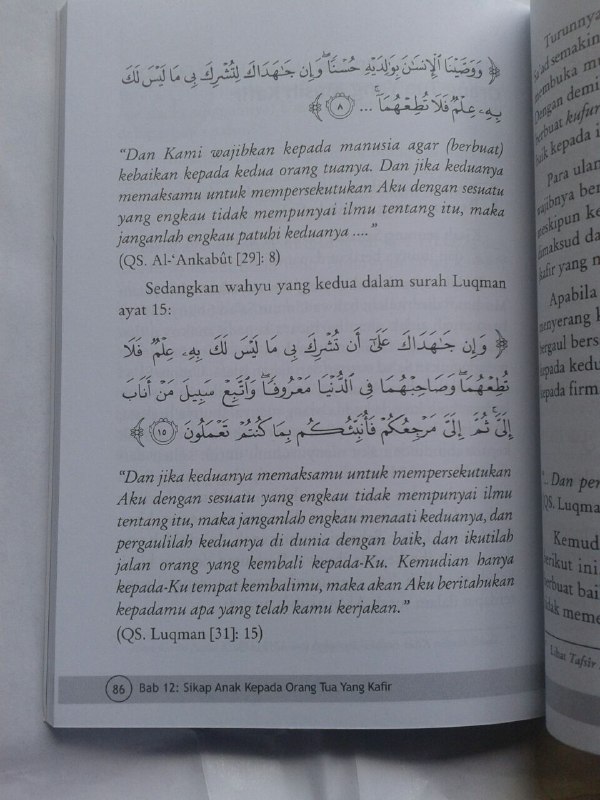 ﴿ وَوَصَّيْنَا ٱلْإِنسَٰنَ بِوَٰلِدَيْهِ حُسْنًا ۖ وَإِن جَٰهَدَاكَ لِتُشْرِكَ بِى مَا لَيْسَ لَكَ
بِهِۦ عِلْمٌ فَلَا تُطِعْهُمَآ ۚ ... ٨ ﴾
“Dan Kami wajibkan kepada manusia agar (berbuat)
kebaikan kepada kedua orang tuanya. Dan jika keduanya
memaksamu untuk mempersekutukan Aku dengan sesuatu
yang engkau tidak mempunyai ilmu tentang itu, maka
janganlah engkau patuhi keduanya ....”
(QS. Al-‘Ankabût [29]: 8)
Sedangkan wahyu yang kedua dalam surah Luqman
ayat 15:
﴿ وَإِن جَٰهَدَاكَ عَلَىٰٓ أَن تُشْرِكَ بِى مَا لَيْسَ لَكَ بِهِۦ عِلْمٌ فَلَا
تُطِعْهُمَا ۖ وَصَاحِبْهُمَا فِى ٱلدُّنْيَا مَعْرُوفًا ۖ وَٱتَّبِعْ سَبِيلَ مَنْ أَنَابَ
إِلَىَّ ۚ ثُمَّ إِلَىَّ مَرْجِعُكُمْ فَأُنَبِّئُكُم بِمَا كُنتُمْ تَعْمَلُونَ ١٥ ﴾
“Dan jika keduanya memaksamu untuk mempersekutukan
Aku dengan sesuatu yang engkau tidak mempunyai ilmu
tentang itu, maka janganlah engkau menaati keduanya, dan
pergaulilah keduanya di dunia dengan baik, dan ikutilah
jalan orang yang kembali kepada-Ku. Kemudian hanya
kepada-Ku tempat kembalimu, maka akan Aku beritahukan
kepadamu apa yang telah kamu kerjakan.”
(QS. Luqman [31]: 15)
86 Bab 12: Sikap Anak Kepada Orang Tua Yang Kafir
Turunnya
semakin
membuka
Dengan demi
berbuat kufur
baik kepada i
Para ulan
wajibnya ber
meskipun ke
dimaksud da
kafir yang
Apabila
menyerang k
bergaul bers
kepada kedu
kepada firm
“.. Dan per
QS. Luqma
Kemud
berikut ini
berbuat bai
tidak meme
Lihat Tafsir